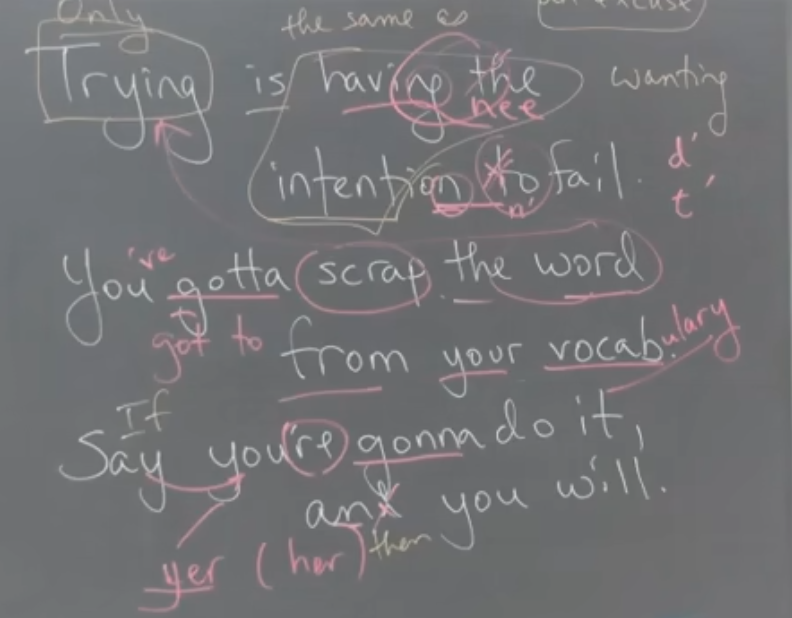 Only the same as
Trying is having the wanting
nee
intention to fail. d'
n' t'
've
You gotta scrap the word
got to from your vocab.ulary
If
Say you're gonna do it,
and you will.
yer (her) then